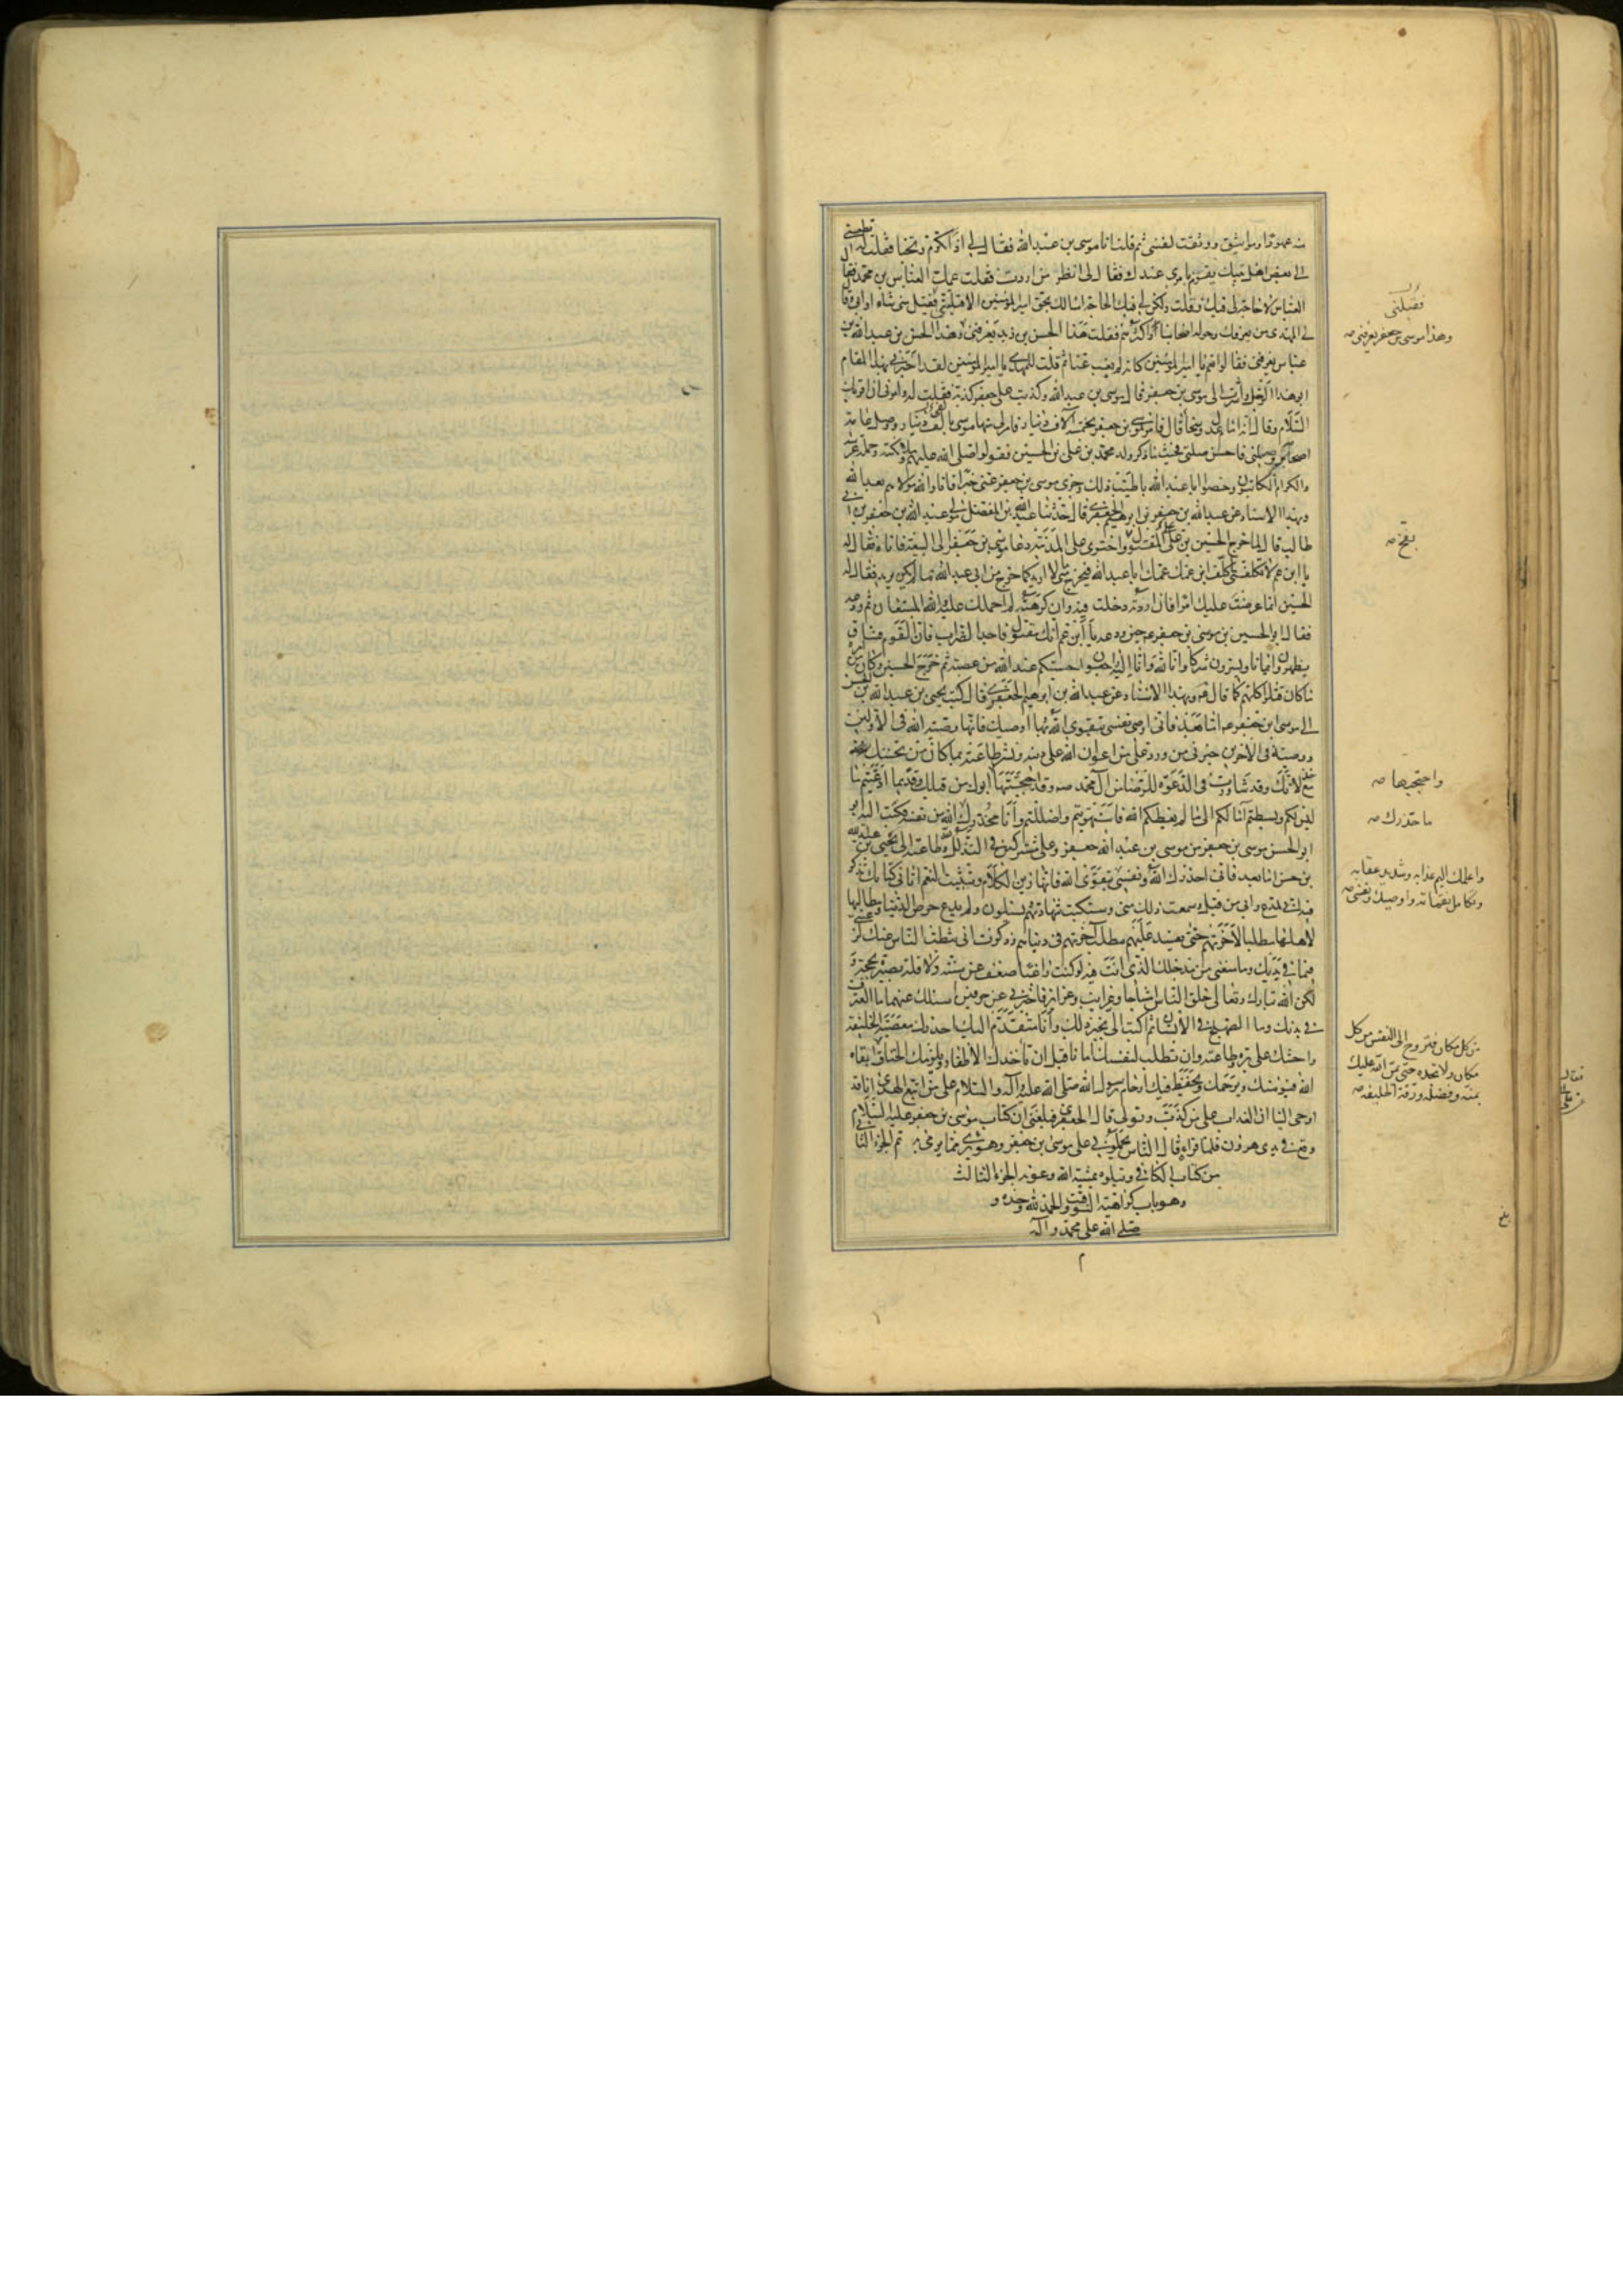 منه عهودا ومواثيق ووثقت لنفسي ثم قلت انا موسى بن عبدالله فقال لي اذا تكرم وتحبا فقلت له اقطعني
الى بعض اهل بيتك يقوم بامري عندك فقال لي انظر من اردت فقلت عمك العباس بن محمد فقال
العباس لا حاجة لي فيك فقلت ولكن لي فيك الحاجة اسالك بحق امير المؤمنين الا قبلتني فقبلني شاء او ابى وقال
لي المهدي من يعرفك وحوله اصحابنا او اكثرهم فقلت هذا الحسن بن زيد يعرفني وهذا الحسن بن عبيدالله بن
عباس يعرفني فقالوا نعم يا امير المؤمنين كانه لم يغب عنا ثم قلت للمهدي يا امير المؤمنين لقد اخبرني بهذا المقام
ابو هذا الرجل واشرت الى موسى بن جعفر قال موسى بن عبدالله وكذبت على جعفر كذبة فقلت له وامرني ان اقرئك
السلام وقال انه امام عدل وسخا قال فامر لموسى بن جعفر بخمسة آلاف دينار فامر لي منها موسى بالفي دينار ووصل عامة
اصحابه ووصلني فاحسن صلتي فحيث ما ذكر ولد محمد بن علي بن الحسين فقولوا صلى الله عليهم وملائكته وحملة عرشه
والكرام الكاتبون وخصوا ابا عبدالله باطيب ذلك وجزى موسى بن جعفر عني خيرا فانا والله مولاهم بعد الله
وبهذا الاسناد عن عبدالله بن جعفر بن ابرهيم الجعفري قال حدثنا عبدالله بن المفضل مولى عبدالله بن جعفر بن ابي
طالب قال لما خرج الحسين بن علي المقتول واحتوى على المدينة دعا موسى بن جعفر الى البيعة فاتاه فقال له
يا ابن عم لا تكلفني ما كلف ابن عمك عمك ابا عبدالله فيخرج مني ما لا اريد كما خرج من ابي عبدالله ما لم يكن يريد فقال له
الحسين انما عرضت عليك امرا فان اردته دخلت فيه وان كرهته لم احملك عليه والله المستعان ثم ودعه
فقال ابو الحسن موسى بن جعفر ع حين ودعه يا ابن عم انك مقتول فاجد الضراب فان القوم فساق
يظهرون ايمانا ويسترون شركا وانا لله وانا اليه راجعون احتسبكم عند الله من عصبة ثم خرج الحسين وكان من امره
ما كان قتلوا كلهم كما قال ع وبهذا الاسناد عن عبدالله بن ابرهيم الجعفري قال كتب يحيى بن عبدالله بن الحسن
الى موسى ابن جعفر ع اما بعد فاني اوصي نفسي بتقوى الله وبها اوصيك فانها وصية الله في الاولين
ووصيته في الاخرين خبرني من ورد علي من اعوان الله على دينه ونشر طاعته بما كان من تحننك
مع خذلانك وقد شاورت في الدعوة للرضا من آل محمد ص وقد احتجبتها ابوك من قبلك وقديما ادعيتم ما
ليس لكم وبسطتم آمالكم الى ما لم يعطكم الله فاستهويتم واضللتم وانا محذرك الله من نفسه فكتب اليه ابو
ابو الحسن موسى بن جعفر من موسى بن عبدالله جعفر وعلي مشتركين في التذلل لله وطاعته الى يحيى بن عبدالله
بن حسن اما بعد فاني احذرك الله ونفسي بتقوى الله فانها زين الكلام وتثبيت النعم اتاني كتابك تذكر
فيه اني مدع وابي من قبل وما سمعت ذلك مني وستكتب شهادتهم ويسئلون ولم يدع حرص الدنيا ومطالبها
لاهلها مطلبا لاخرتهم حتى يفسد عليهم مطلب آخرتهم في دنياهم وذكرت اني ثبطت الناس عنك لرغبتي
فيما في يديك وما منعني من مدخلك الذي انت فيه لو كنت راغبا ضعف عن سنة ولا قلة بصيرة بحجة و
لكن الله تبارك وتعالى خلق الناس امشاجا وغرايب وغرايز فاخبرني عن حرفين اسئلك عنهما ما العترف
في بدنك وما الصهلج في الانسان ثم اكتب الي بخبر ذلك وانا متقدم اليك احذرك معصية الخليفة
واحثك على بره وطاعته وان تطلب لنفسك امانا قبل ان تاخذك الاظفار ويلزمك الخناق ابقاه
الله فيؤمنك ويرحمك ويحفظ فيك ارحام رسول الله صلى الله عليه وآله والسلام على من اتبع الهدى انا قد
اوحي الينا ان العذاب على من كذب وتولى قال الجعفري فبلغني ان كتاب موسى بن جعفر عليه السلام
وقع في يدي هرون فلما قراه قال الناس يحملوني على موسى بن جعفر وهو بري مما يرمى به تم الجزء الثاني
من كتاب الكافي ويتلوه بمشية الله وعونه الجزء الثالث
وهو باب كراهية التوقيت والحمد لله وحده و
صلى الله على محمد وآله
فقبلني
وهذا موسى بن جعفر يعرفني صه
بفخ صه
واحتجبها صه
ما حذرك صه
واعلمك اليم عذابه وشديد عقابه
وتكامل نقماته واوصيك ونفسي صه
من كل مكان فتروح الى النفس من كل
مكان ولا تجده حتى يمن الله عليك
بمنه وفضله ورقة الخليفة صه
بلغ